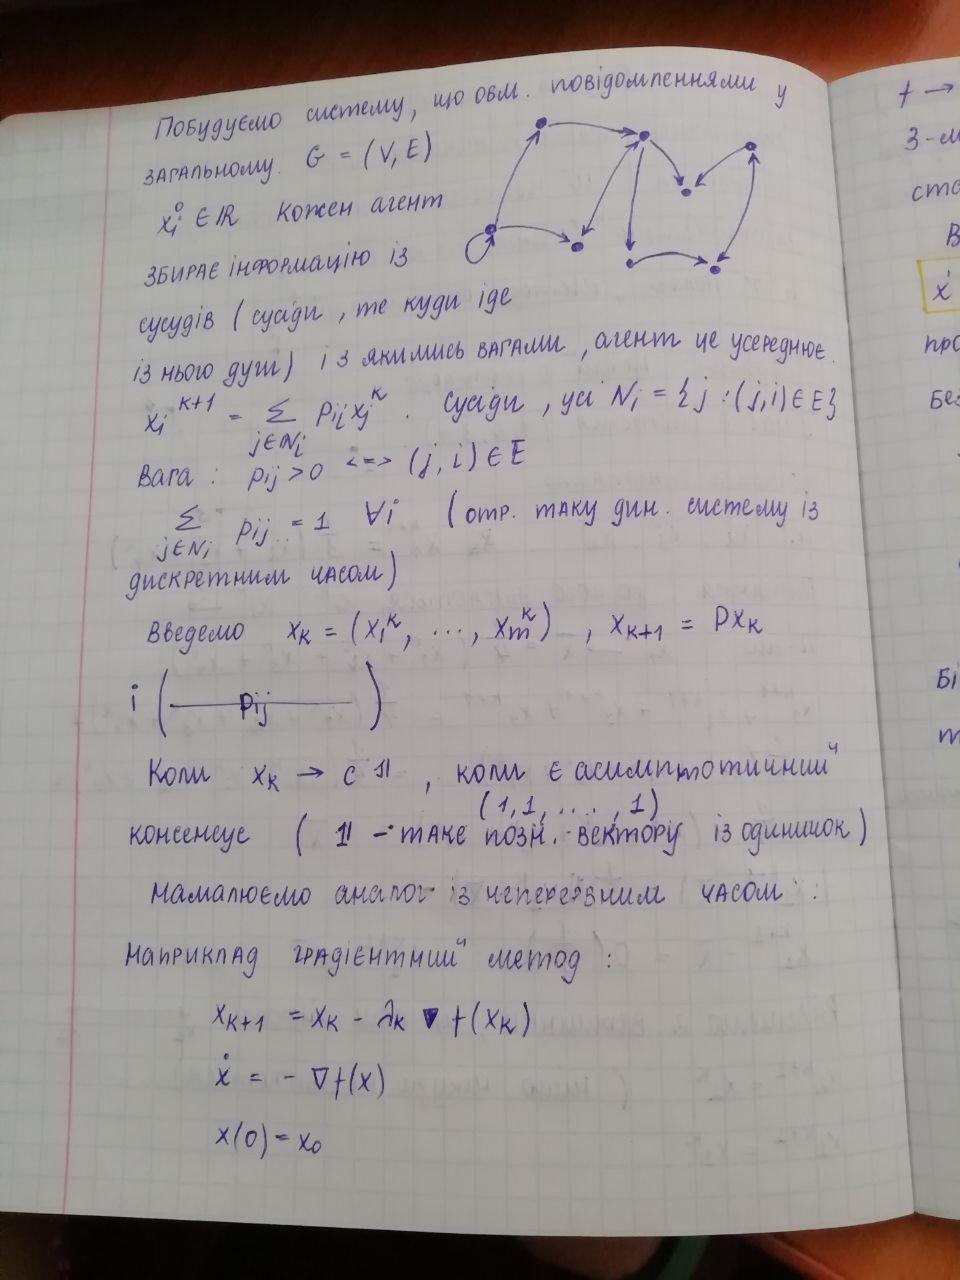 Побудуємо систему, що обм. повідомленнями у
загальному. G = (V, E)
xᵢ⁰ ∈ ℝ кожен агент
збирає інформацію із
сусудів (сусіди, те куди іде
із нього дуги) із якимись вагами, агент це усереднює.
xᵢᵏ⁺¹ = Σ_{j∈Nᵢ} pᵢⱼ xⱼᵏ. Сусіди, усі Nᵢ = {j : (j, i) ∈ E}
Вага: pᵢⱼ > 0 <=> (j, i) ∈ E
Σ_{j∈Nᵢ} pᵢⱼ = 1 ∀i (отр. таку дин. систему із
дискретним часом)
Введемо xₖ = (x₁ᵏ, ..., xₘᵏ), xₖ₊₁ = Pxₖ
i (— pᵢⱼ —)
Коли xₖ → c 𝟙, коли є асимптотичний
(1, 1, ..., 1)
консенсус ( 𝟙 - таке позн. вектору із одиничок)
Намалюємо аналог із неперервним часом:
Наприклад градієнтний метод:
xₖ₊₁ = xₖ - λₖ ∇f(xₖ)
ẋ = - ∇f(x)
x(0) = x₀
f →
З-м
ста
В
ẋ
про
Без
Бі
т